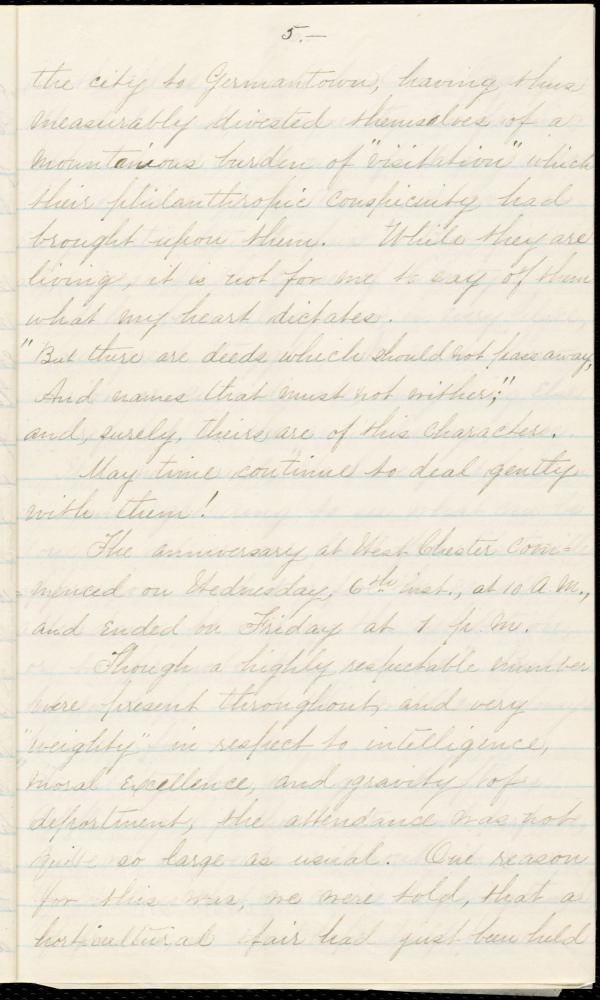 5.—
the city to Germantown, having thus
measurably divested themselves of a
mountainous burden of "visitation" which
their philanthropic conspicuity had
brought upon them. While they are
living, it is not for me to say of them
what my heart dictates.
"But there are deeds which should not pass away,
And names that must not wither;"
and, surely, theirs are of this character.
May time continue to deal gently
with them!
The anniversary at West Chester com=
menced on Wednesday, 6th inst., at 10 A.M.,
and ended on Friday at 1 p.m.
Though a highly respectable number
were present throughout, and very
"weighty" in respect to intelligence,
moral excellence, and gravity of
deportment, the attendance was not
quite so large as usual. One reason
for this was, we were told, that a
horticultural fair had just been held